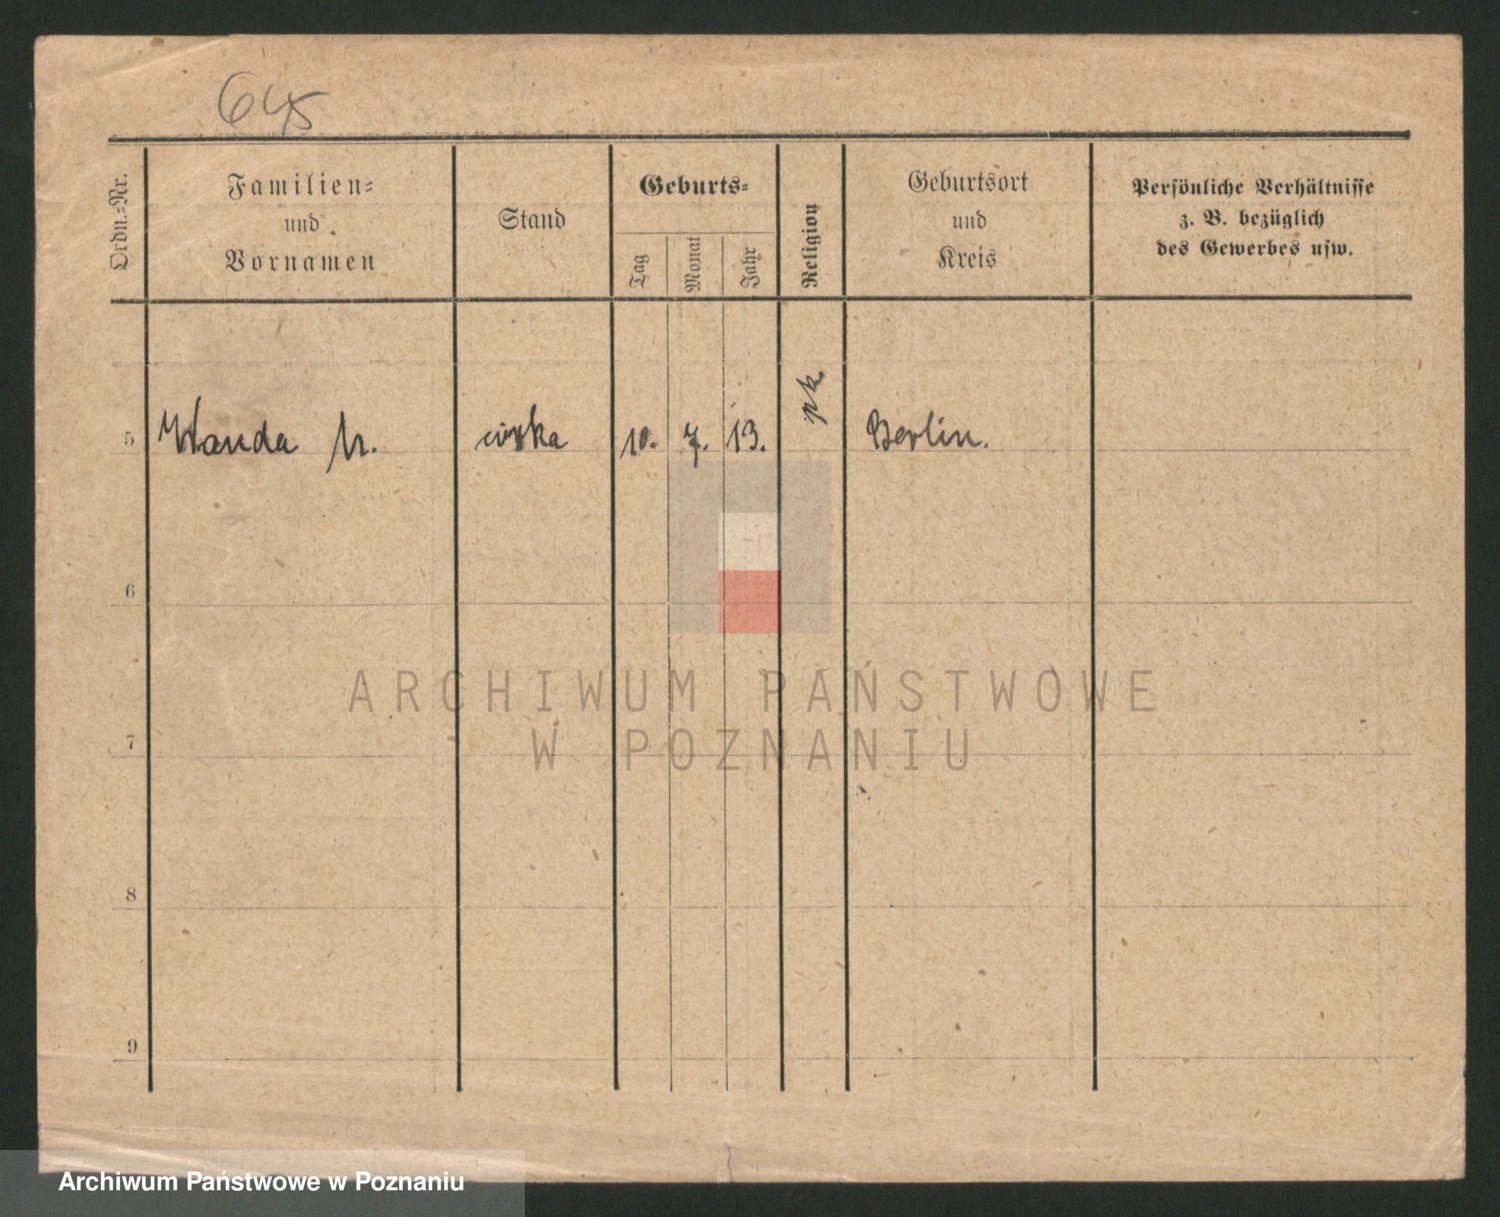 645
Ordn.-Nr.
Familien-
und
Vornamen
Stand
Geburts-
Tag
Monat
Jahr
Religion
Geburtsort
und
Kreis
Persönliche Verhältnisse
z. B. bezüglich
des Gewerbes usw.
5 Wanda córka 10. 7. 13. Berlin.
6
7
8
9
ARCHIWUM PAŃSTWOWE
W POZNANIU
Archiwum Państwowe w Poznaniu